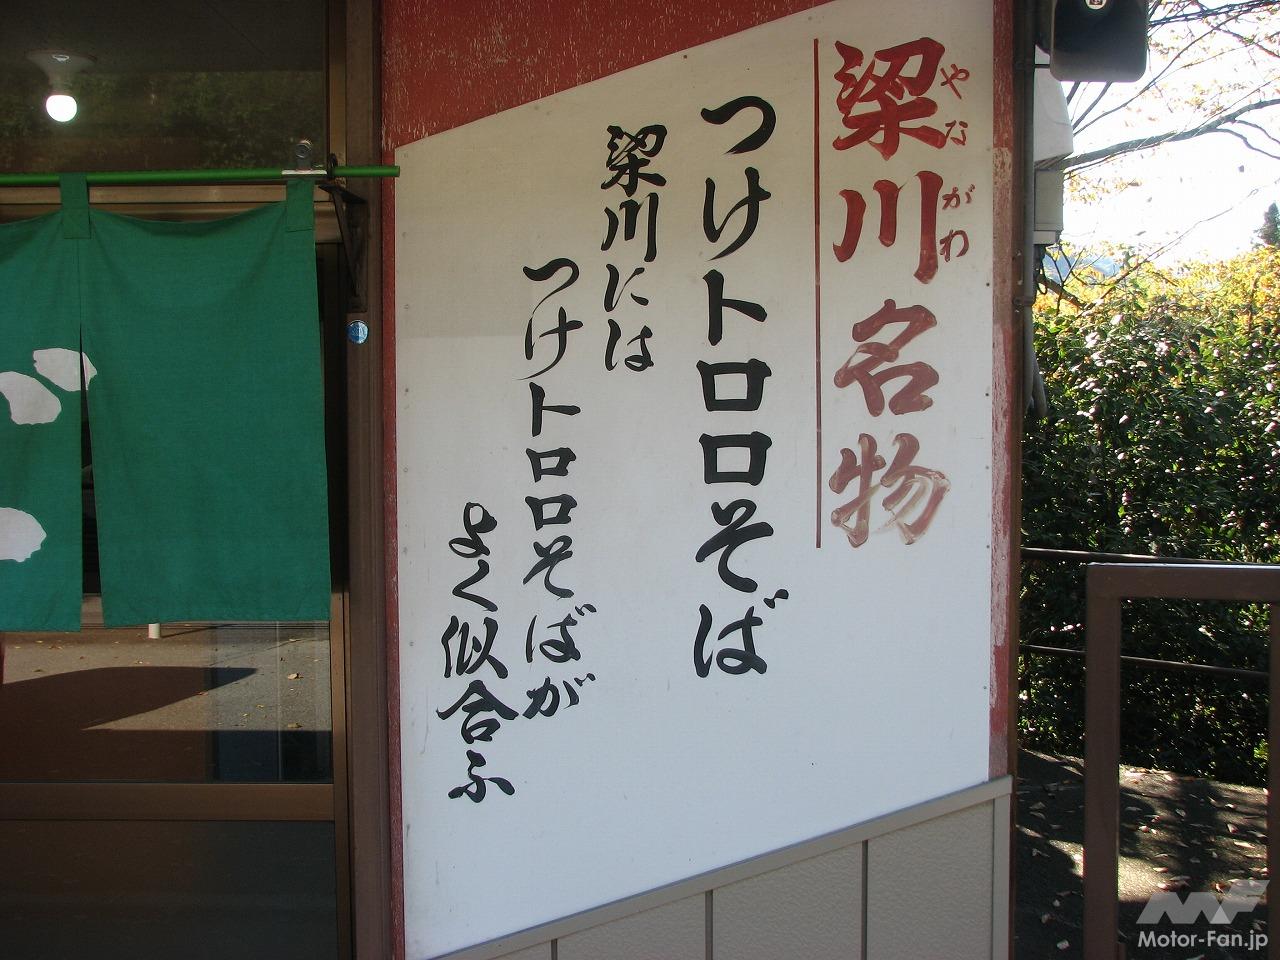 梁川名物
やながわ
つけトロロそば
梁川には
つけトロロそばが
よく似合ふ
Motor-Fan.jp